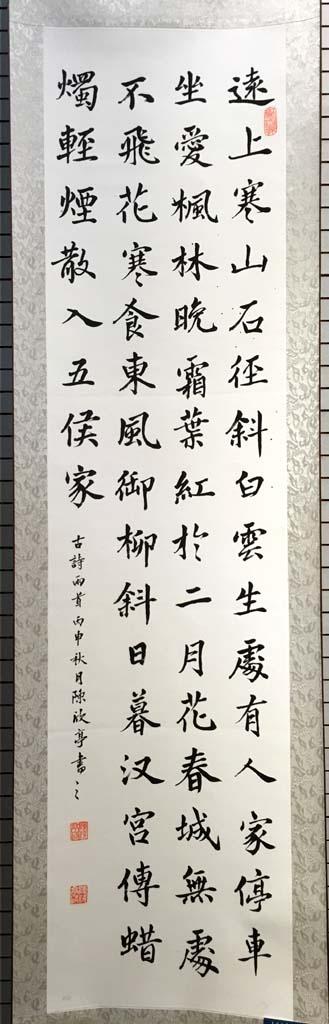 遠上寒山石徑斜白雲生處有人家停車
坐愛楓林晚霜葉紅於二月花春城無處
不飛花寒食東風御柳斜日暮汉宮傳蜡
燭輕煙散入五侯家
古詩兩首丙申秋月陳欣亭書之